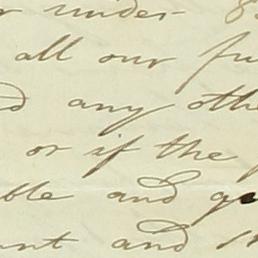 under
all our fu
any othe
or if the
ble and
and